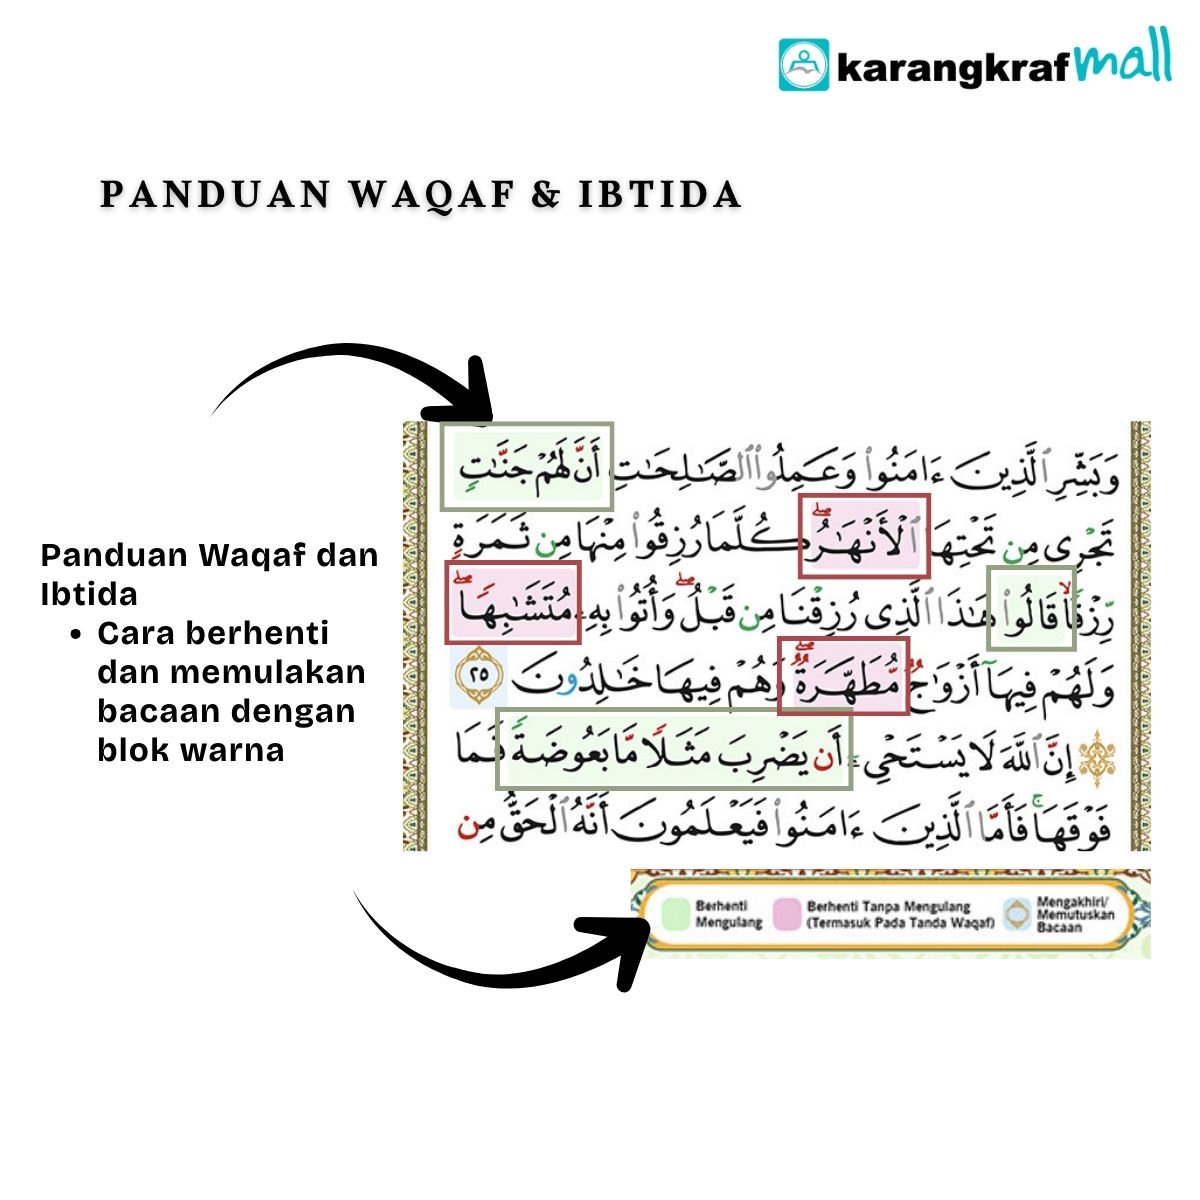 karangkraf mall
PANDUAN WAQAF & IBTIDA
Panduan Waqaf dan
Ibtida
• Cara berhenti
dan memulakan
bacaan dengan
blok warna
وَبَشِّرِ ٱلَّذِينَ ءَامَنُوا۟ وَعَمِلُوا۟ ٱلصَّـٰلِحَـٰتِ أَنَّ لَهُمْ جَنَّـٰتٍ
تَجْرِى مِن تَحْتِهَا ٱلْأَنْهَـٰرُ ۖ كُلَّمَا رُزِقُوا۟ مِنْهَا مِن ثَمَرَةٍ
رِّزْقًا ۙ قَالُوا۟ هَـٰذَا ٱلَّذِى رُزِقْنَا مِن قَبْلُ ۖ وَأُتُوا۟ بِهِۦ مُتَشَـٰبِهًا ۖ
وَلَهُمْ فِيهَآ أَزْوَٰجٌ مُّطَهَّرَةٌ ۖ وَهُمْ فِيهَا خَـٰلِدُونَ ٢٥
إِنَّ ٱللَّهَ لَا يَسْتَحْىِۦٓ أَن يَضْرِبَ مَثَلًا مَّا بَعُوضَةً فَمَا
فَوْقَهَا ۚ فَأَمَّا ٱلَّذِينَ ءَامَنُوا۟ فَيَعْلَمُونَ أَنَّهُ ٱلْحَقُّ مِن
Berhenti
Mengulang
Berhenti Tanpa Mengulang
(Termasuk Pada Tanda Waqaf)
Mengakhiri/
Memutuskan
Bacaan